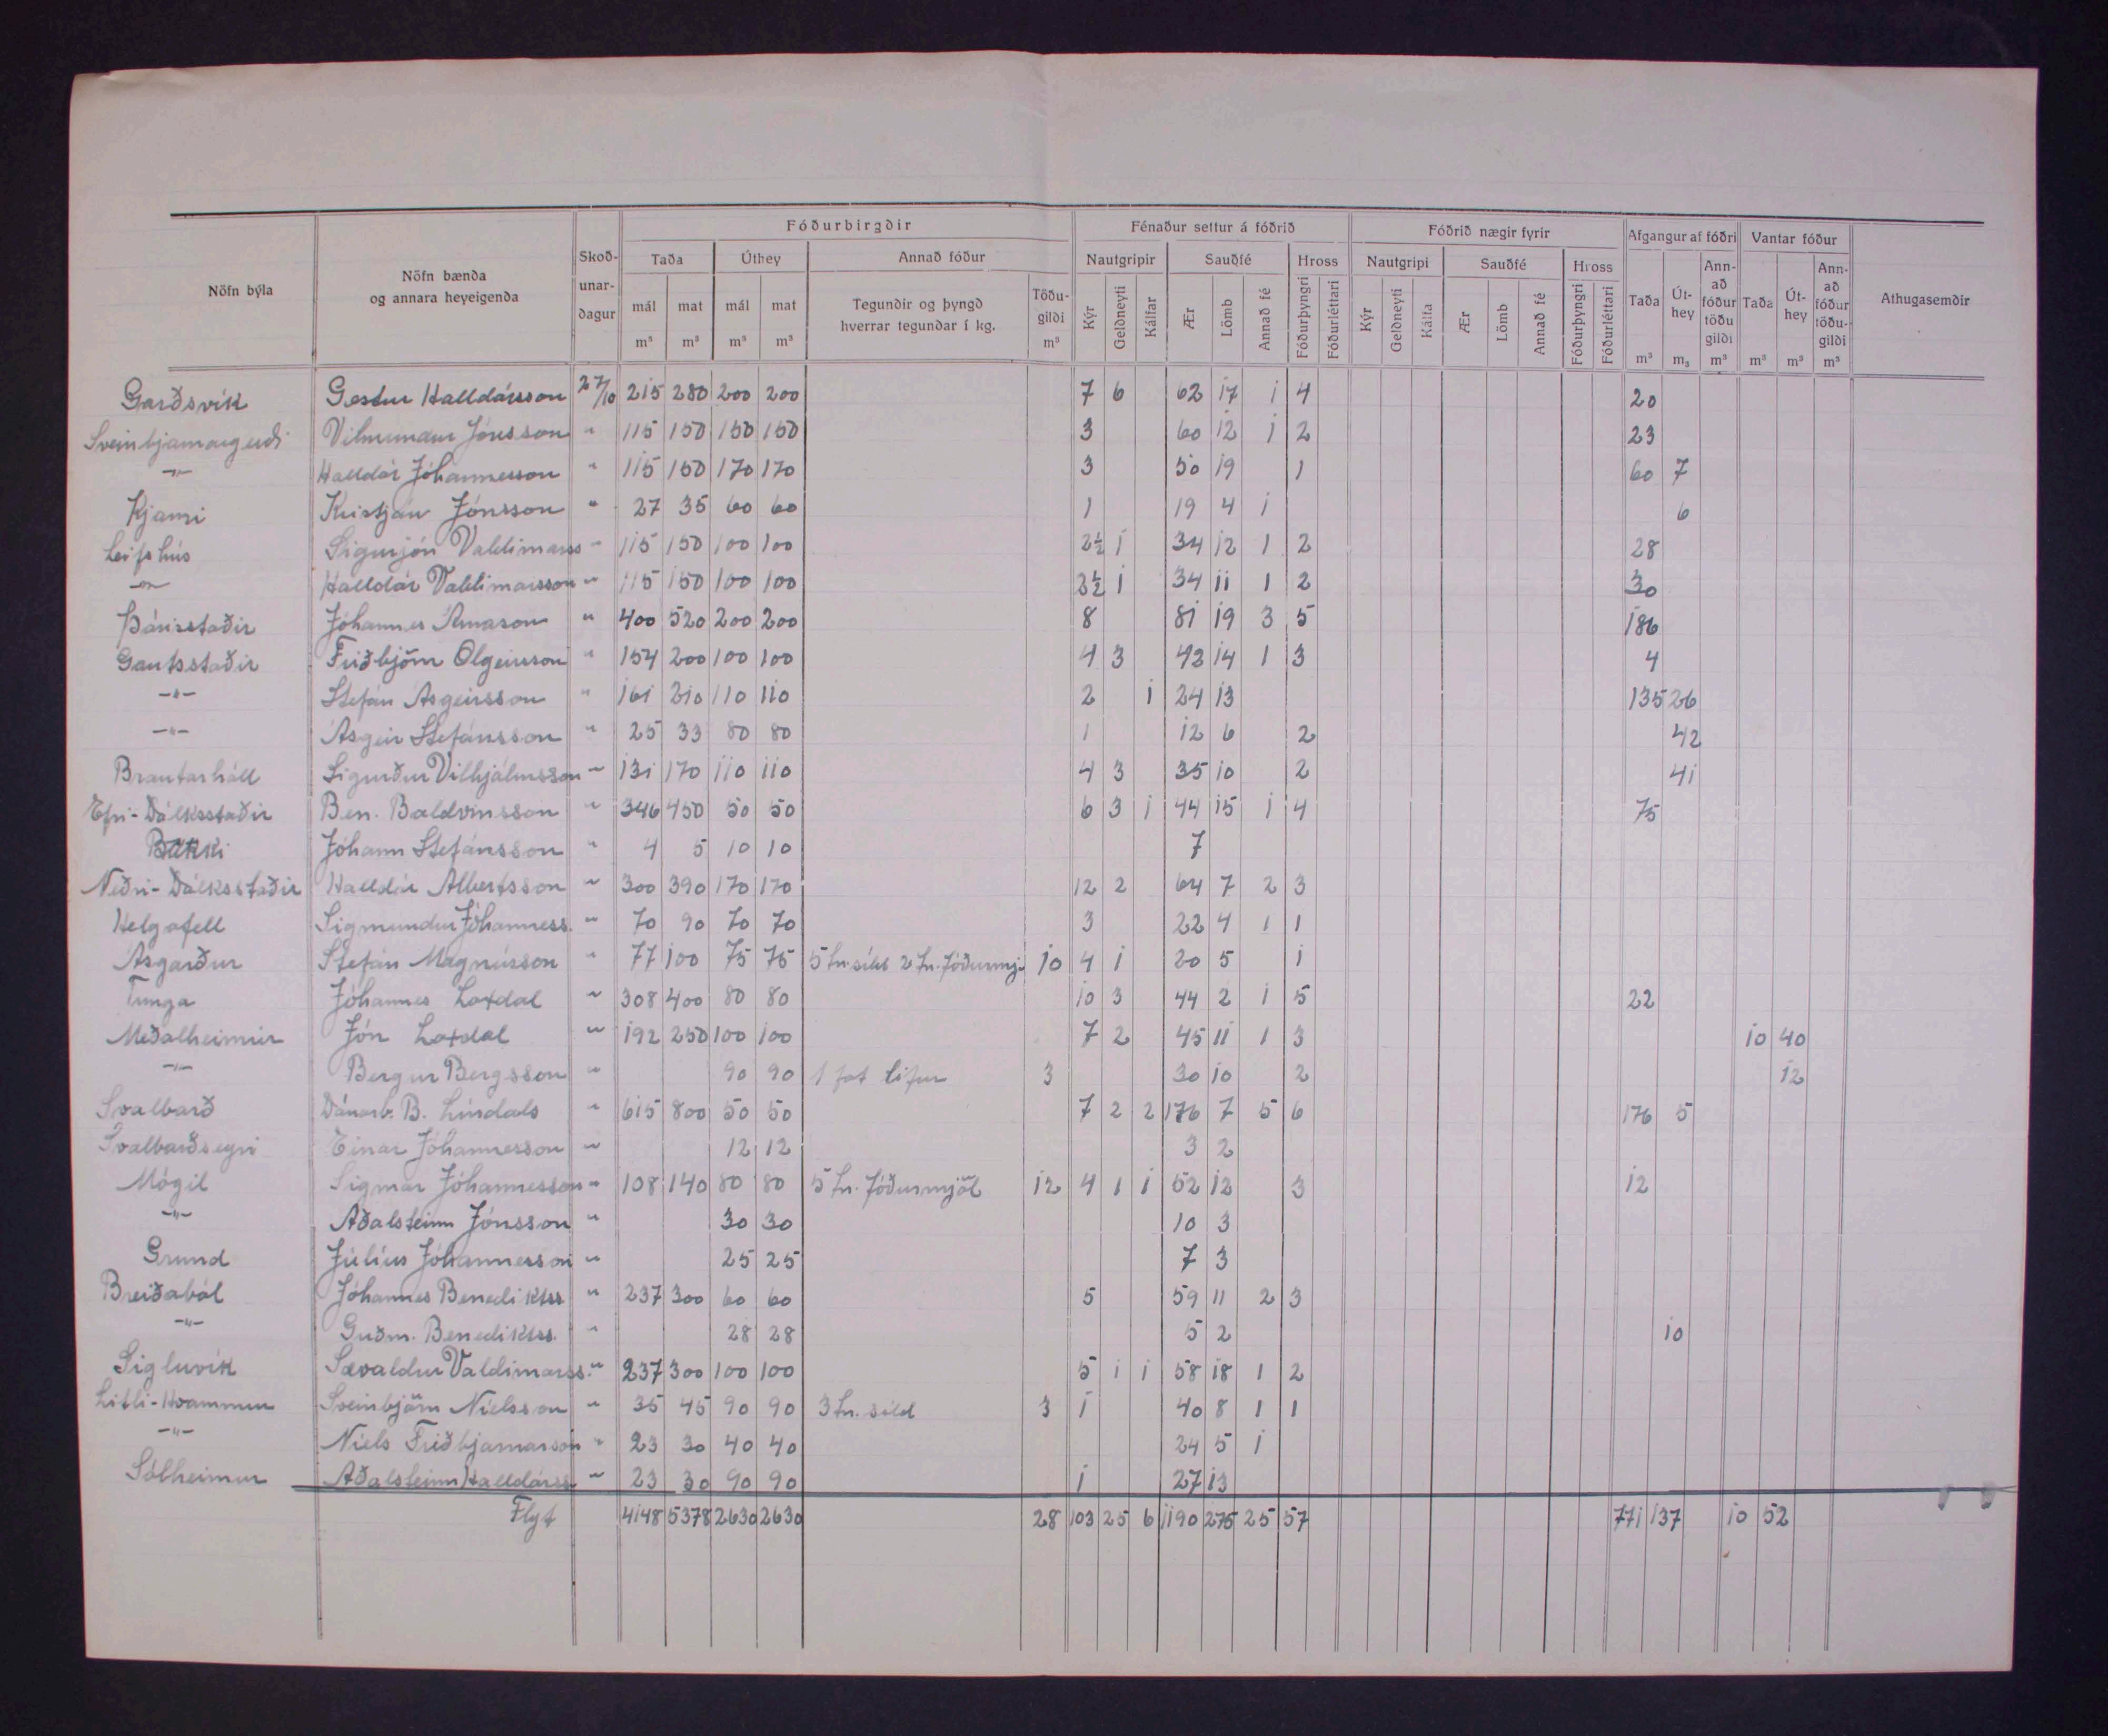 Fóðurbirgðir Fénaður settur á fóðrið Fóðrið nægir fyrir Afgangur af fóðri Vantar fóður
Nöfn býla Nöfn bænda og annara heyeigenda Skoð-unar-dagur Taða Úthey Annað fóður Nautgripir Sauðfé Hross Nautgripi Sauðfé Hross Taða Út-hey Ann-að fóður töðu gildi Taða Út-hey Ann-að fóður töðu-gildi Athugasemdir
mál mat mál mat Tegundir og þyngd hverrar tegundar í kg. Töðu-gildi Kýr Geldneyti Kálfar Ær Lömb Annað fé Fóðurþyngri Fóðurléttari Kýr Geldneyti Kálfa Ær Lömb Annað fé Fóðurþyngri Fóðurléttari
m³ m³ m³ m³ m³ m³ m₃ m³ m³ m³ m³
Garðsvík Gestur Halldórsson 27/10 215 280 200 200 7 6 62 17 1 4 20
Sveinbjarnargerði Vilmundur Jónsson " 115 150 150 150 3 60 12 1 2 23
-"- Halldór Jóhannesson " 115 150 170 170 3 50 19 1 60 7
Kjarni Kristján Jónsson " 27 35 60 60 1 19 4 1 6
Leifshús Sigurjón Valdimarss " 115 150 100 100 2½ 1 34 12 1 2 28
-"- Halldór Valdimarsson " 115 150 100 100 2½ 1 34 11 1 2 30
Þórisstaðir Jóhannes Árnason " 400 520 200 200 8 81 19 3 5 186
Gautsstaðir Friðbjörn Olgeirsson " 154 200 100 100 4 3 42 14 1 3 4
-"- Stefán Ásgeirsson " 161 210 110 110 2 1 24 13 135 26
-"- Ásgeir Stefánsson " 25 33 80 80 1 12 6 2 42
Brautarhóll Sigurður Vilhjálmsson " 131 170 110 110 4 3 35 10 2 41
Efri-Dálksstaðir Ben. Baldvinsson " 346 450 50 50 6 3 1 44 15 1 4 75
Bakki Jóhann Stefánsson " 4 5 10 10 7
Neðri-Dálksstaðir Halldór Albertsson " 300 390 170 170 12 2 64 7 2 3
Helgafell Sigmundur Jóhanness. " 70 90 70 70 3 22 4 1 1
Ásgarður Stefán Magnússon " 77 100 75 75 5 tn. síld 2 tn. fóðurmj. 10 4 1 20 5 1
Tunga Jóhannes Laxdal " 308 400 80 80 10 3 44 2 1 5 22
Meðalheimur Jón Laxdal " 192 250 100 100 7 2 45 11 1 3 10 40
-"- Bergur Bergsson " 90 90 1 fat lifur 3 30 10 2 12
Svalbarð Dánarb. B. Líndals " 615 800 50 50 7 2 2 176 7 5 6 176 5
Svalbarðseyri Einar Jóhannesson " 12 12 3 2
Mógil Sigmar Jóhannesson " 108 140 80 80 5 tn. fóðurmjöl 12 4 1 1 52 12 3 12
-"- Aðalsteinn Jónsson " 30 30 10 3
Grund Júlíus Jóhannesson " 25 25 7 3
Breiðaból Jóhannes Benediktss " 237 300 60 60 5 59 11 2 3
-"- Guðm. Benediktss. " 28 28 5 2 10
Sigluvík Sævaldur Valdimarss. " 237 300 100 100 5 1 1 58 18 1 2
Litli-Hvammur Sveinbjörn Níelsson " 35 45 90 90 3 tn. síld 3 1 40 8 1 1
-"- Níels Friðbjarnarson " 23 30 40 40 24 5 1
Sólheimar Aðalsteinn Halldórss " 23 30 90 90 1 27 13
Flyt 4148 5378 2630 2630 28 103 25 6 1190 275 25 57 771 137 10 52